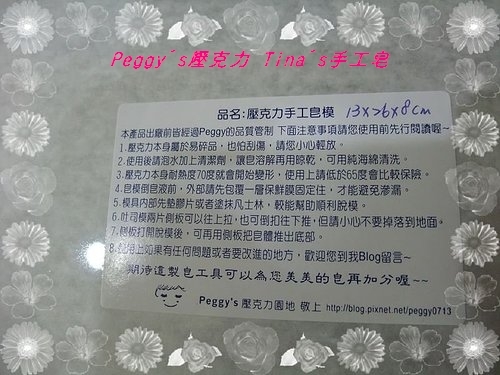 Peggy's壓克力 Tina's手工皂
品名:壓克力手工皂模 13x26x8cm
本產品出廠前皆經過Peggy的品質管制 下面注意事項請您使用前先行閱讀喔~
1.壓克力本身屬於易碎品,也怕刮傷,請您小心輕放。
2.使用後請泡水加上清潔劑,讓皂溶解再用晾乾,可用純海綿清洗。
3.壓克力本身耐熱度70度就會開始變形,使用上請低於65度會比較保險。
4.皂模倒皂液前,外部請先包覆一層保鮮膜固定住,才能避免滲漏。
5.模具內部先墊膠片或者塗抹凡士林,較能幫助順利脫模。
6.吐司模兩片側板可以往上拉,也可倒扣往下推,但請小心不要掉落到地面。
7.側板打開脫模後,可再用側板把皂體推出底部。
8.使用上如果有任何問題或者要改進的地方,歡迎您到我Blog留言~
期待這製皂工具可以為您美美的皂再加分喔~~
Peggy's 壓克力園地 敬上 http://blog.pixnet.net/peggy0713